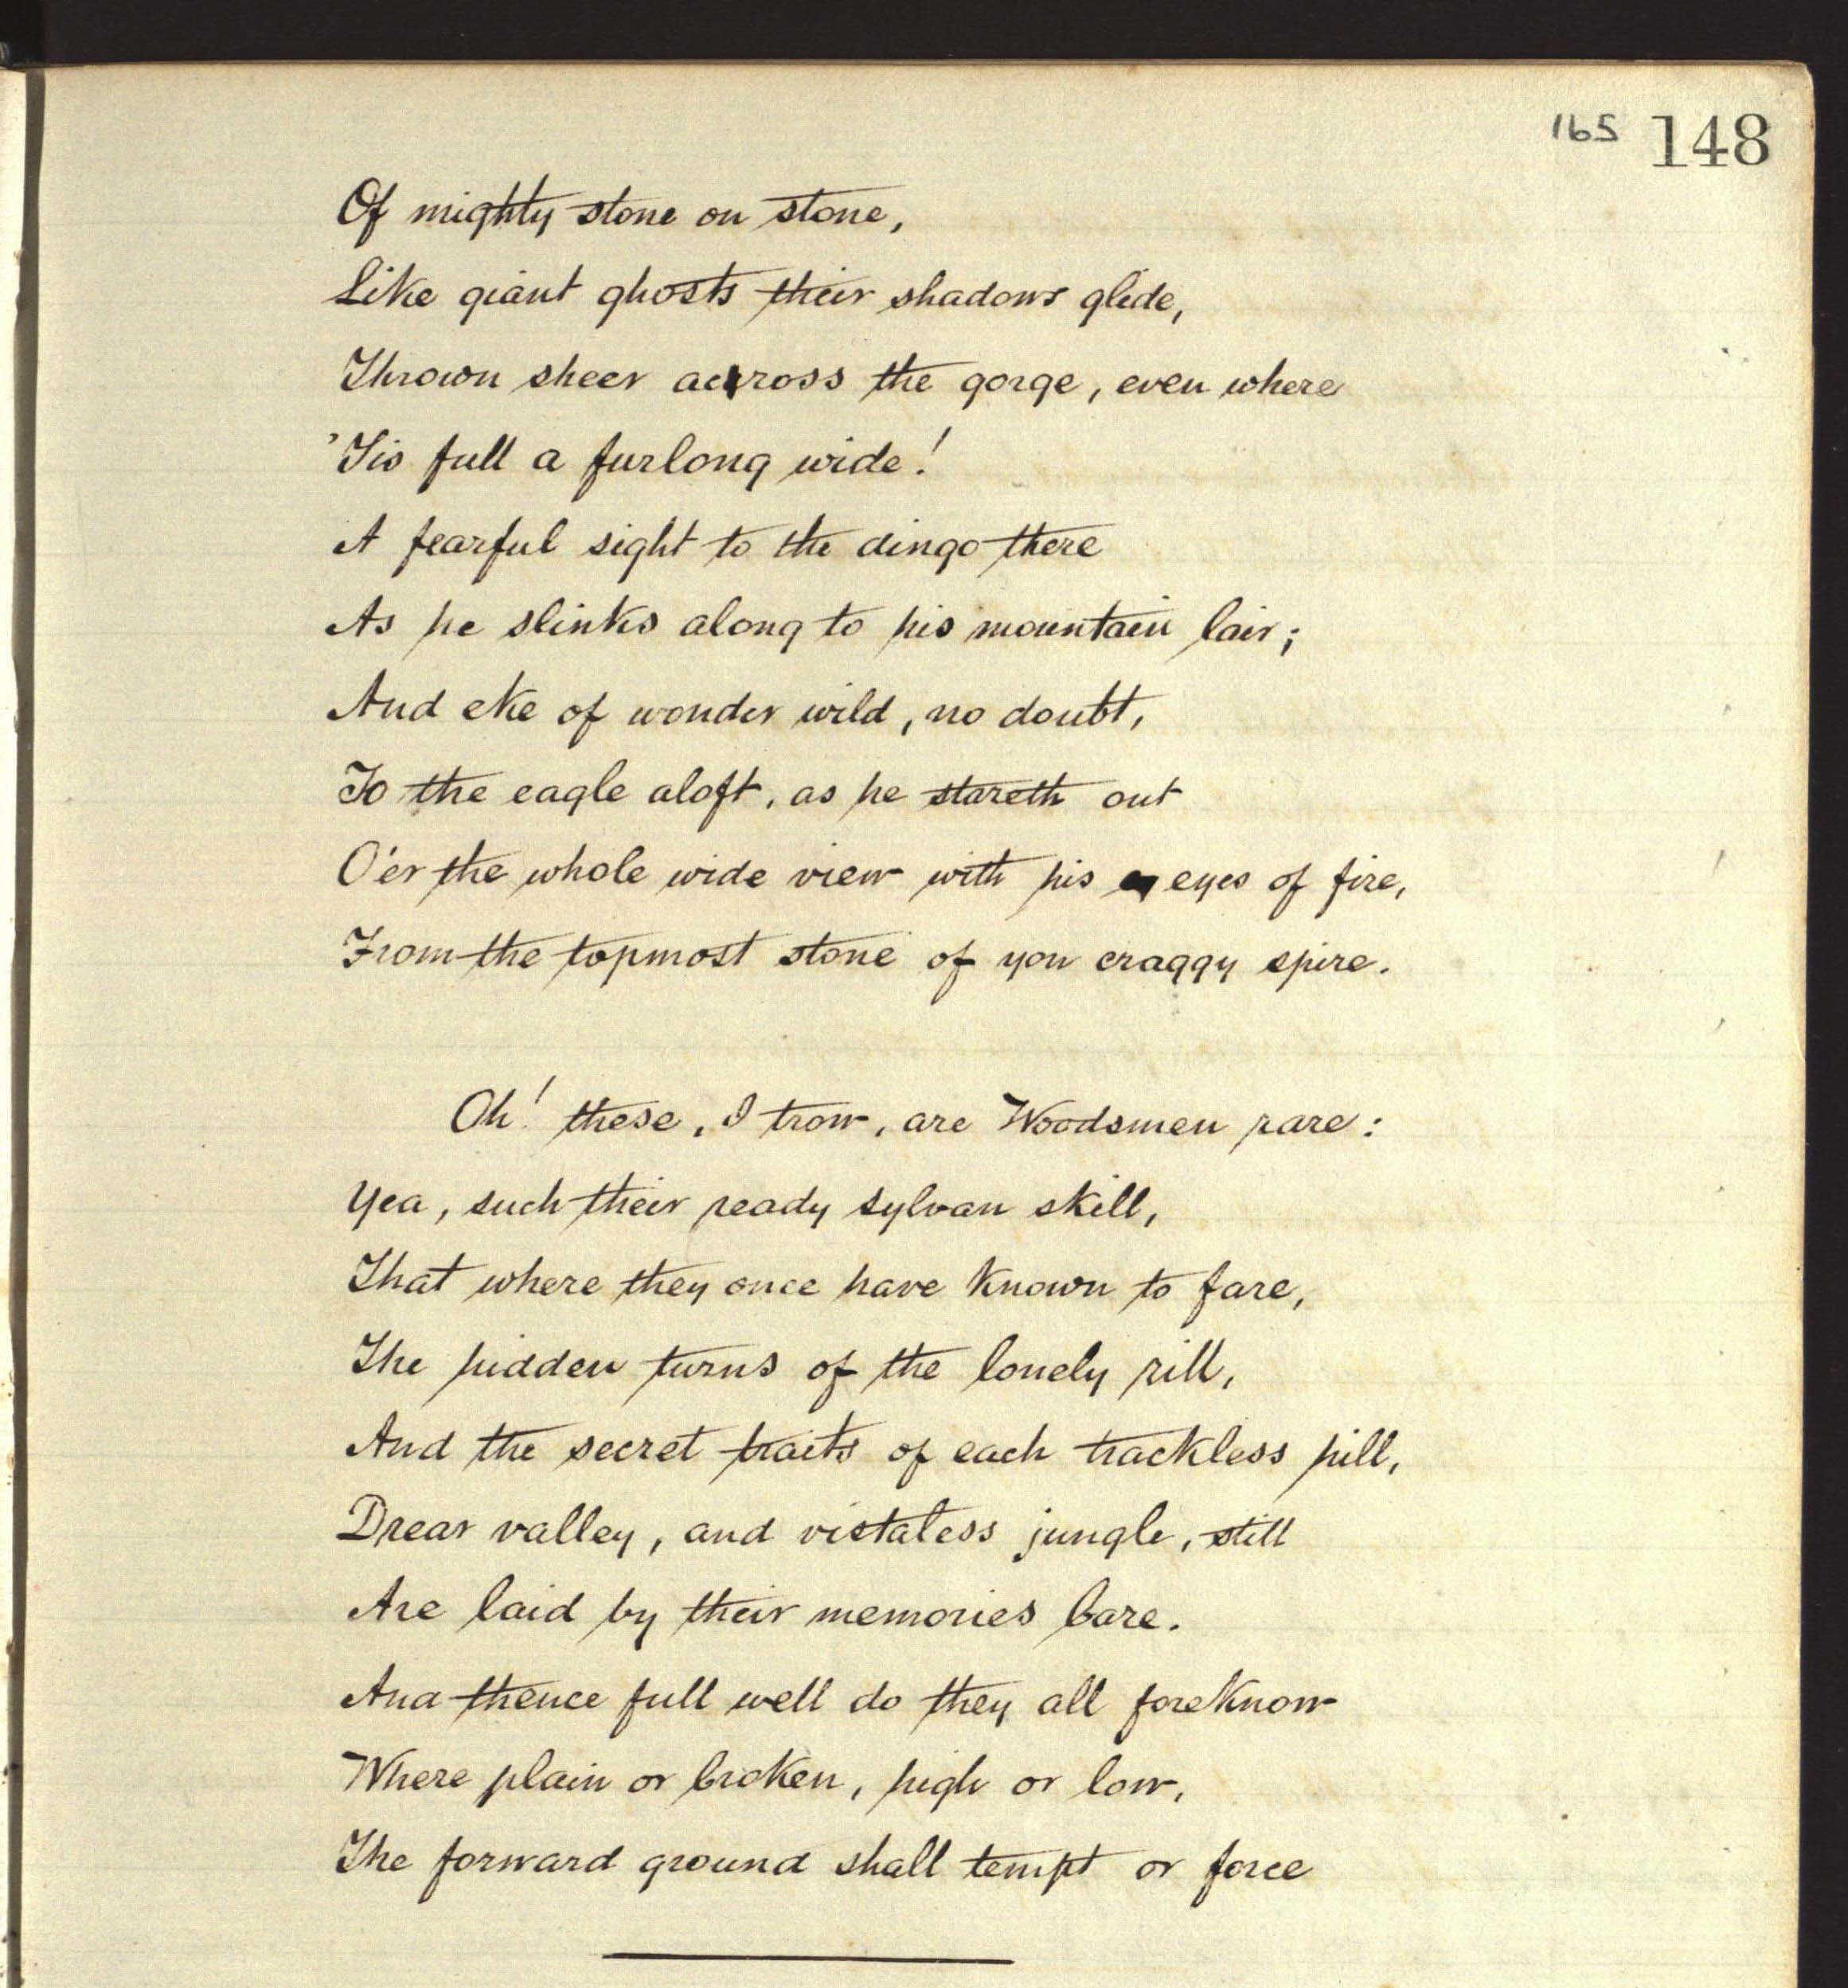 165 148
Of mighty stone on stone,
Like giant ghosts their shadows glide,
Thrown sheer across the gorge, even where
'Tis full a furlong wide!
A fearful sight to the dingo there
As he slinks along to his mountain lair;
And eke of wonder wild, no doubt,
To the eagle aloft, as he stareth out
O'er the whole wide view with his eyes of fire,
From the topmost stone of yon craggy spire.
Oh! these, I trow, are Woodsmen rare:
Yea, such their ready sylvan skill,
That where they once have known to fare,
The hidden turns of the lonely rill,
And the secret traits of each trackless hill,
Drear valley, and vistaless jungle, still
Are laid by their memories bare.
And thence full well do they all foreknow
Where plain or broken, high or low,
The forward ground shall tempt or force